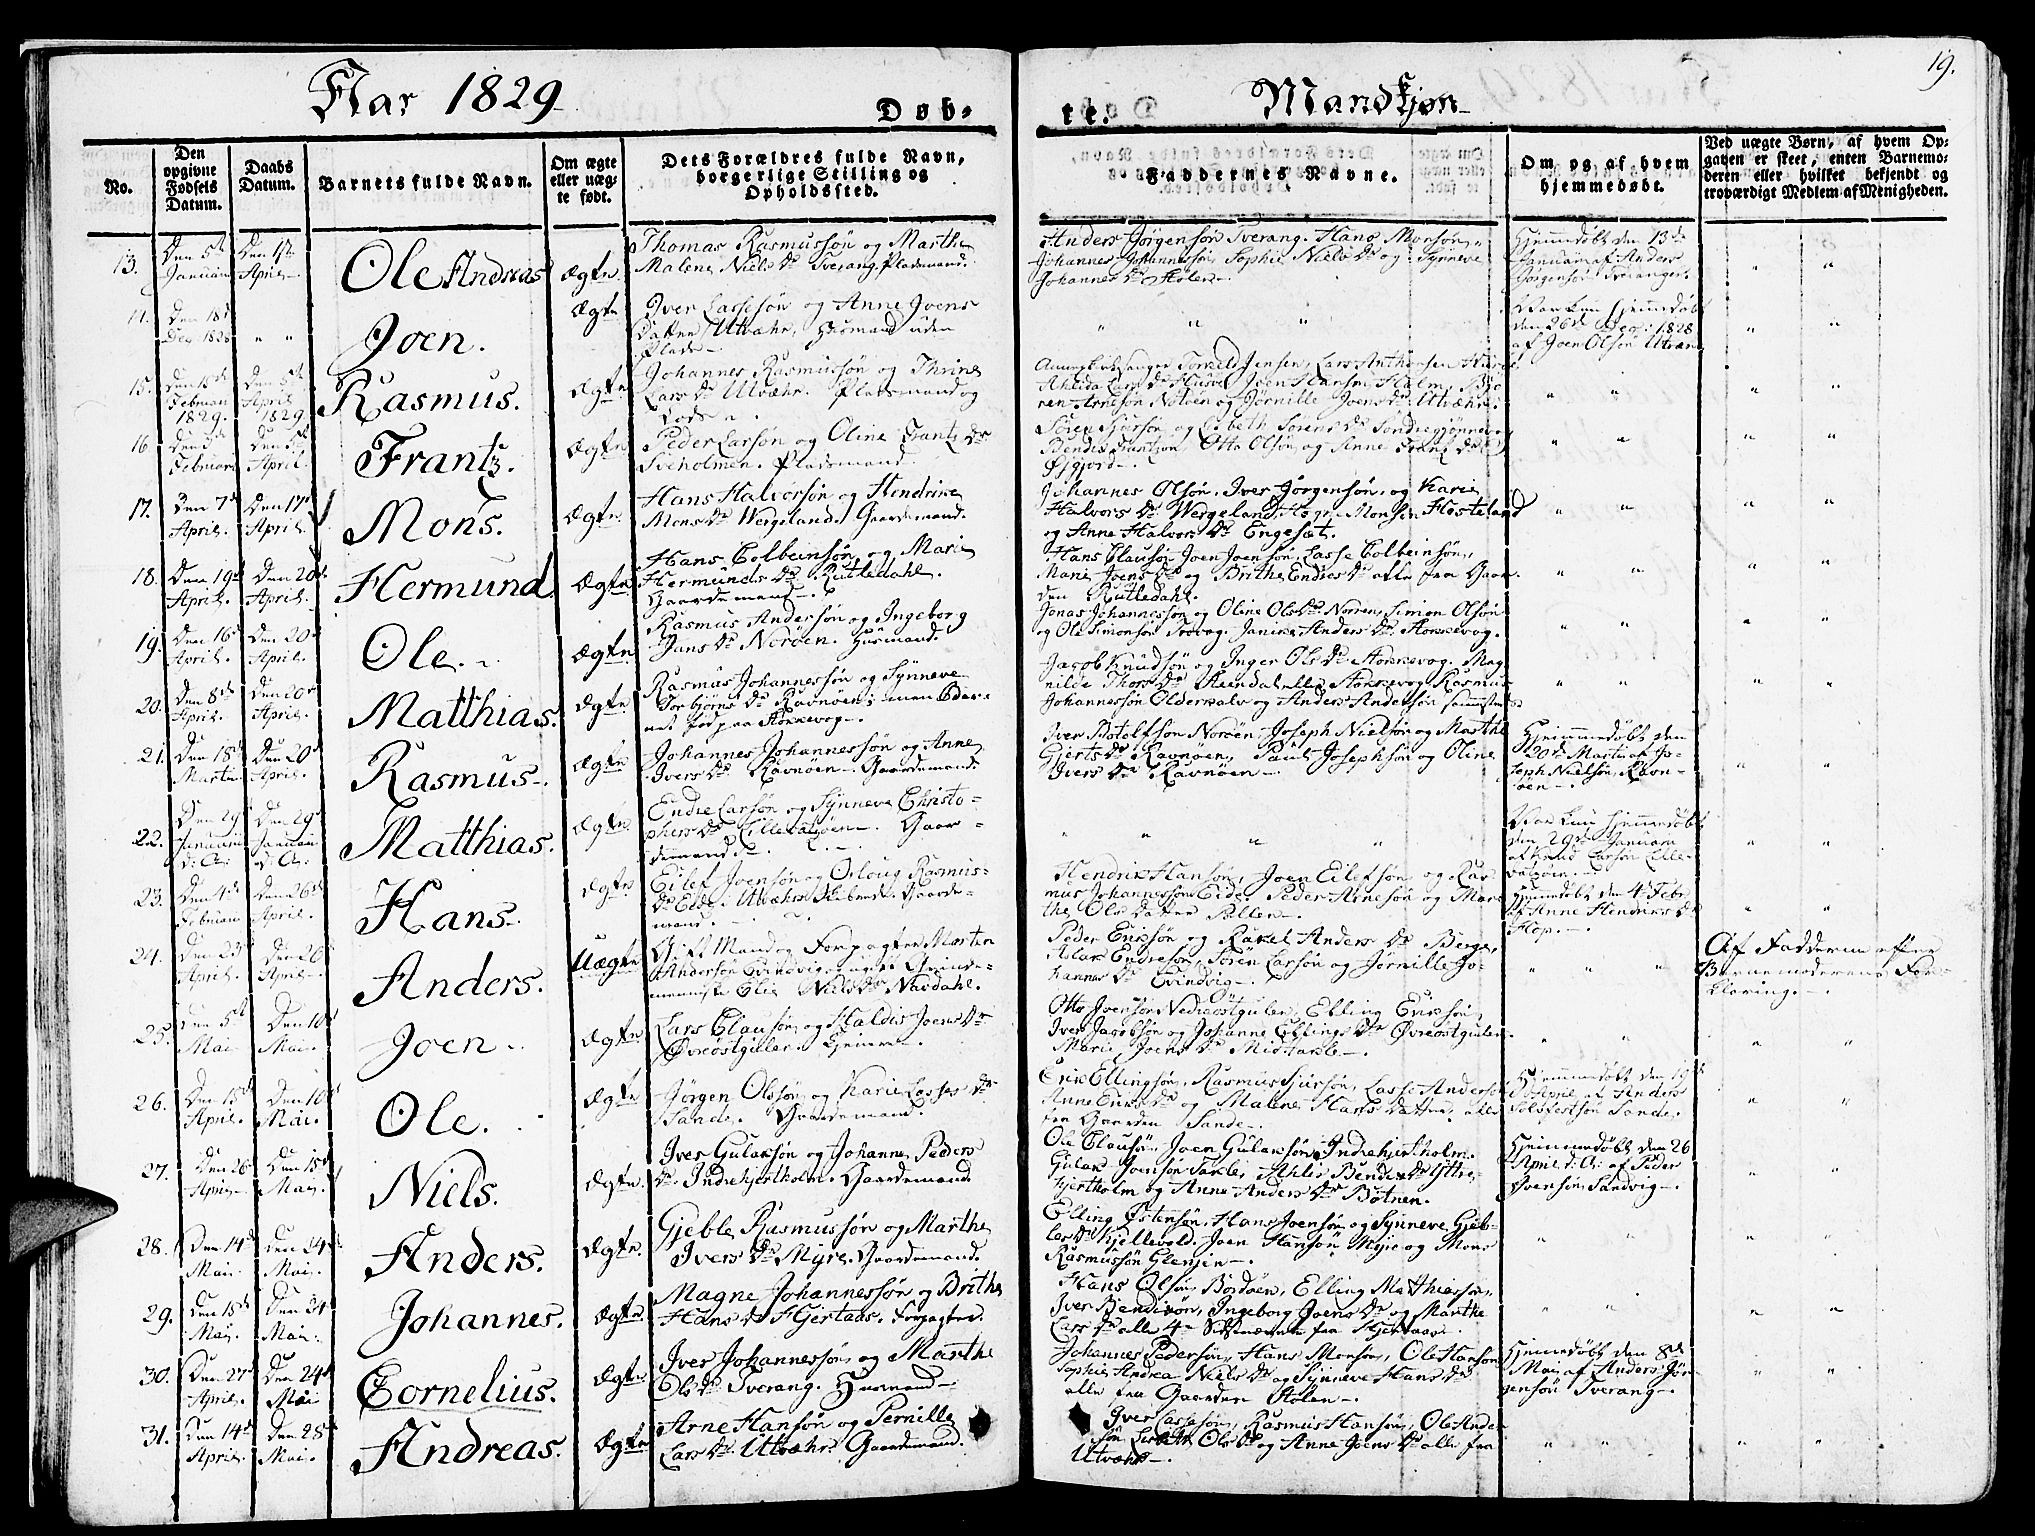 Aar 1829
Døb-
te.
Mandkjøn
19.
No.
Den opgivne Fødsels Datum.
Daabs Datum.
Barnets fulde Navn.
Om ægte eller uægte født.
Dets Forældres fulde Navn, borgerlige Stilling og Opholdssted.
Faddernes Navne.
Om og af hvem hjemmedøbt.
Ved uægte Børn, af hvem Opgaven er skeet, enten Barnemoderen eller hvilket bekjendt og troværdigt Medlem af Menigheden.
13.
Den 5te Januari
Den 1ste April
Ole Andreas
Ægte.
Thomas Rasmussøn og Marthe
Malene Niels Dr Tverang. Pladsmand.
Anders Jørgensøn Tverang. Hans Monsøn,
Johannes Johannessøn, Sophie Niels Dr og Synneve
Johannes Dr Hølen
Hjemmedøbt den 13de
Januari af Anders
Jørgensøn Tveranger.
14.
Den 18de Dec 1828
Joen.
Ægte
Iver Lassesøn og Anne Joens
Datter Utvæhr, Husmand uden
Plads
den 26de Dec: 1828
af Joen Olsøn Utvær
15.
Februari 1829.
April 1829
Rasmus.
Ægte
Johannes Rasmussøn og Thrine
Lars Dr Utvæhr. Pladsmand og
Lods
Joen Hansøn Holm,
Arnesøn Notøen og Jørnille Joens Dr Utvæhr.
16
Februari
Den 5te April
Frantz.
Ægte
Peder Larsøn og Oline Frantz Dr
Pladsmand
Otto Olsøn og Anne Frantz Dr
17.
Den 7de April.
Den 17de April.
Mons.
Ægte.
Hans Halvorsøn og Hendrine
Mons Dr Wergeland. Gaardmand.
Johannes Olsøn, Iver Jørgensøn, og Karie
Halvors Dr Wergeland, Monsen Flosteland
og Anne Halvors Dr Engesæt.
18.
Den 19de April.
Den 20de April.
Hermund
Ægte
Hans Colbeinsøn og Marie
Hermunds Dr Rutledahl.
Gaardemand.
Hans Clausøn Joen Joensøn, Lasse Colbeinsøn,
Marie Joens Dr og Brithe Endres Dr alle fra Gaar-
den Rutledahl.
19.
Den 16de April.
Den 20de April.
Ole.
Ægte.
Rasmus Andersøn og Ingeborg
Jans Dr Norøen. Husmand.
Jonas Johannessøn og Oline Ols Dr Norøen, Simon Olsøn
og Ole Simonsøn Trovog. Janike Anders Dr Stokkevog.
20.
Den 8de April.
Den 20de April.
Matthias.
Ægte.
Rasmus Johannessøn og Synneve
Torbjørns Dr Ravnøen; men
født paa Stokkevog.
Jacob Knudsøn og Inger Ols Dr Stokkevog. Mag-
nilde Thors Dr Steendal eller Stokkevog Rasmus
Johannessøn Olderkalv og Anders Andersøn
21.
Den 18de Martii
Den 20de April.
Rasmus.
Ægte
Johannes Johannessøn og Anne
Ivers Dr Ravnøen. Gaardemand.
Iver Botolfsøn Norøen, Joseph Nielsøn og Marthe
Gjerts Dr Ravnøen, Paul Josephsøn og Oline
Ivers Dr Ravnøen
Hjemmedøbt den
20de Martii af Jo-
seph Nielsøn, Ravn-
øen.
22.
Den 29de Januarii
Den 29de Januari
Matthias.
Ægte
Endre Larsøn og Synneve Christo-
phers Dr Lillevatsøen. Gaar-
demand.
Var kun hjemmedøbt
den 29de Januari
af Knud Larsøn Lille-
vatsøen.
23.
Den 4de Februari
Den 26de April.
Hans.
Ægte
Eilef Joensøn og Oslaug Rasmus-
Dr Eide, Gaarde-
mand.
Hendrik Hansøn, Joen Eilefsøn og Ras-
mus Johannessøn Eide. Peder Arnesøn og Mar-
the Ols datter Pollen.
Hjemmedøbt den 4de Febr
af Anne Hendriks Dr
Hop.
24.
Den 23de April.
Den 26de April
Anders.
Uægte
Gift Mand og Forpagter Morten
Andersøn Evindvig og ugift
Elie Niels Dr Navdahl.
Peder Eriksøn og Rakel Anders Dr Berge,
Aslak Endresøn, Søren Larsøn og Jørnille Jo-
hannes Dr Evindvig.
Af Fadderne efter
Barnemoderens For-
klaring.
25.
Den 5te Mai
Den 10de Mai.
Joen
Ægte
Lars Clausøn og Haldis Joens Dr
Øvreøstgulen.
Otto Iversøn Nedreøstgulen, Elling Eriksøn,
Iver Jacobsøn og Johanne Ellings Dr Øvreøstgulen.
Marie Joens Dr Midtakle.
26.
Den 15de April.
Den 10de Mai.
Ole.
Ægte
Jørgen Olssøn og Karie Lasses Dr
Sande. Gaardemand.
Erik Ellingsøn, Rasmus Sjursøn, Lasse Andersen
Anne Eriks Dr og Malene Hans datter, alle
fra Gaarden Sande
Hjemmedøbt den 19de
April af Anders
Solfestsøn Sande.
27.
Den 26de April
Den 15de Mai.
Niels.
Ægte.
Iver Gulaksøn og Johanne Peders
Dr Indrehjertholm. Gaardemand
Ole Clausøn. Joen Gulaksøn Indrehjertholm.
Gulak Joensøn Takle, Ahlis Bendix Dr Yttre
hjertholm og Anne Anders Dr Bøtnen.
Hjemmedøbt den 26
April d: A: af Peder
Iversøn Sandvig.
28.
Den 14de Mai.
Den 24de Mai.
Anders.
Ægte.
Gjeble Rasmussøn og Marthe
Ivers Dr Myre. Gaardemand.
Elling Østensøn, Hans Joensøn og Synneve Gjeb-
les Dr Hjellevold. Joen Hansøn Myre og Mons
Rasmussøn Glenjen.
29.
Den 15de Mai.
Den 24de Mai.
Johannes.
Ægte.
Magne Johannessøn og Brithe
Hans Dr Hjertaas. Forpagter.
Hans Olsøn, Bordøen, Elling Matthiassøn,
Iver Bendixøn, Ingeborg Joens Dr og Marthe
Lars Dr alle 4re Sidstnævnte fra Hjertaas.
30.
Den 27de April.
Den 24de Mai
Cornelius.
Ægte
Iver Johannessøn og Marthe
Ols Dr Tverang. Husmand
Johannes Pedersøn, Hans Monsøn, Ole Hansøn
Sophie Andrea Niels Dr og Synneve Hans Dr
alle fra Gaarden Hølen.
Hjemmedøbt den 8de
Mai af Anders Jør-
gensøn Tverang.
31.
Den 14de April.
Den 28de Mai.
Andreas.
Ægte
Arne Hansøn og Pernille
Lars Dr Utvæhr. Gaardemand.
Iver Lassesøn, Rasmus Hansøn, Ole Ander-
søn Lisbeth Ols Dr og Anne Joens Dr alle fra
Utvæhr.